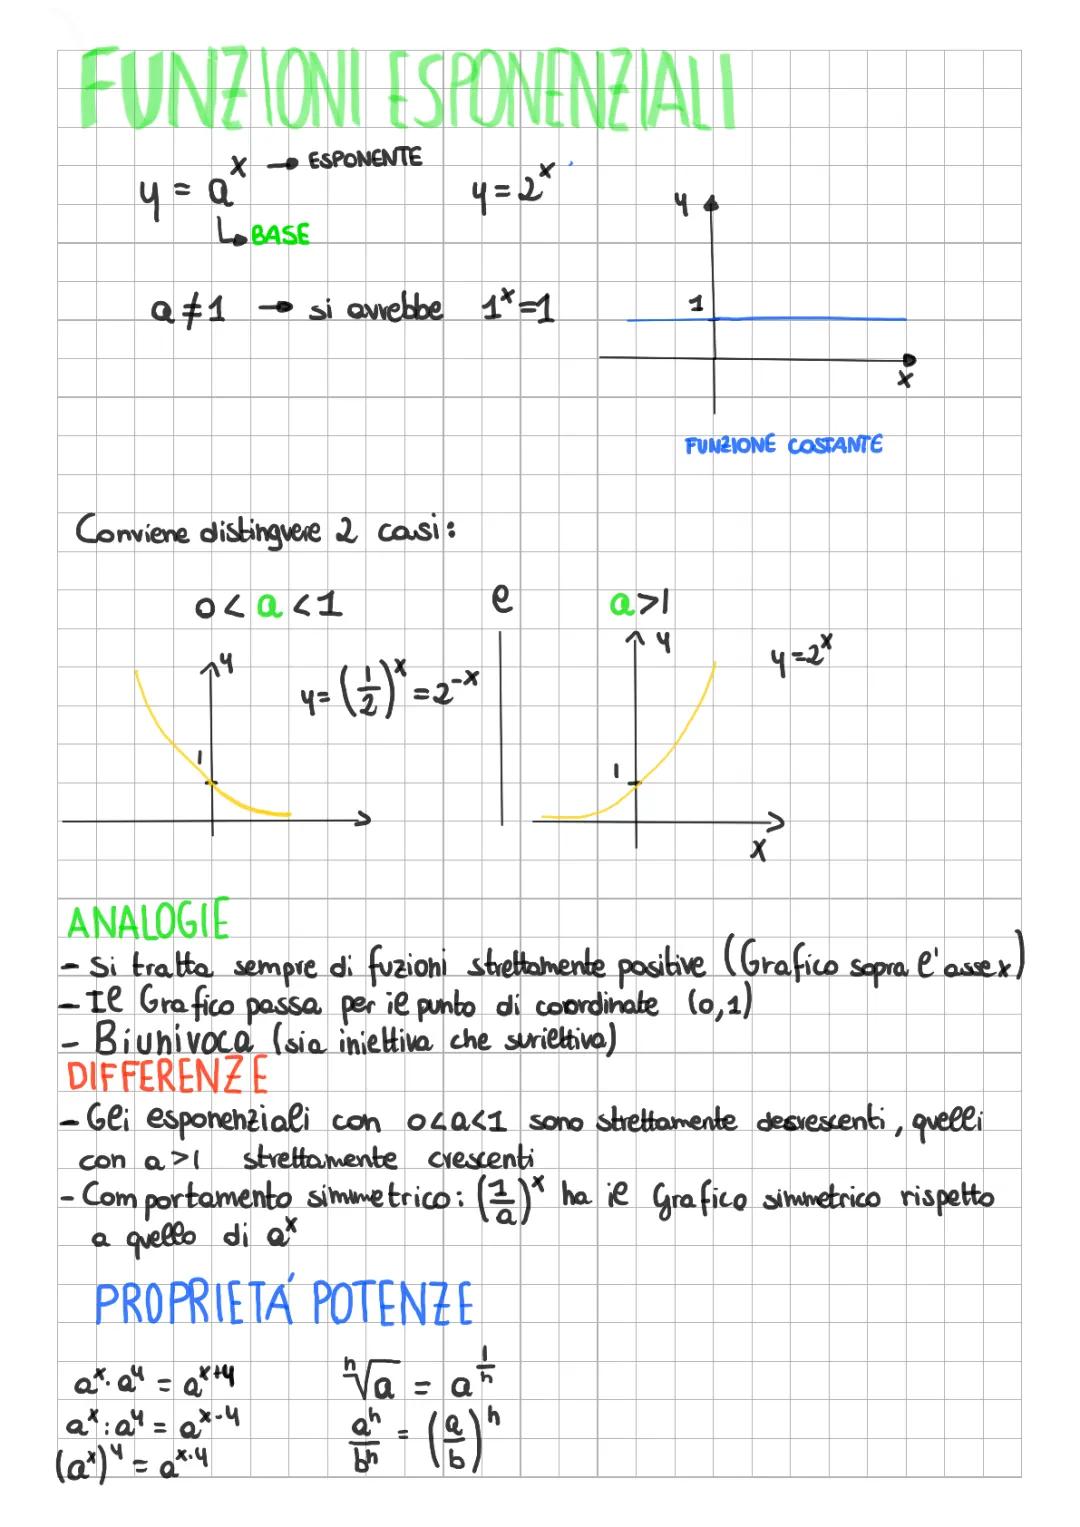 FUNZIONI ESPONENZIALI
y = aˣ → ESPONENTE
↳ BASE
y = 2ˣ
a ≠ 1 → si avrebbe 1ˣ = 1
y
1
x
FUNZIONE COSTANTE
Conviene distinguere 2 casi:
0 < a < 1 e a > 1
y
1
y = (1/2)ˣ = 2⁻ˣ
y
1
x
y = 2ˣ
ANALOGIE
- Si tratta sempre di fuzioni strettamente positive (Grafico sopra l'asse x)
- Il Grafico passa per il punto di coordinate (0,1)
- Biunivoca (sia iniettiva che suriettiva)
DIFFERENZE
- Gli esponenziali con 0<a<1 sono strettamente desrescenti, quelli
con a>1 strettamente crescenti
- Comportamento simmetrico: (1/a)ˣ ha il Grafico simmetrico rispetto
a quello di aˣ
PROPRIETÁ POTENZE
aˣ · aʸ = aˣ⁺ʸ
aˣ : aʸ = aˣ⁻ʸ
(aˣ)ʸ = aˣ·ʸ
ⁿ√a = a^(1/n)
aⁿ/bⁿ = (a/b)ⁿ